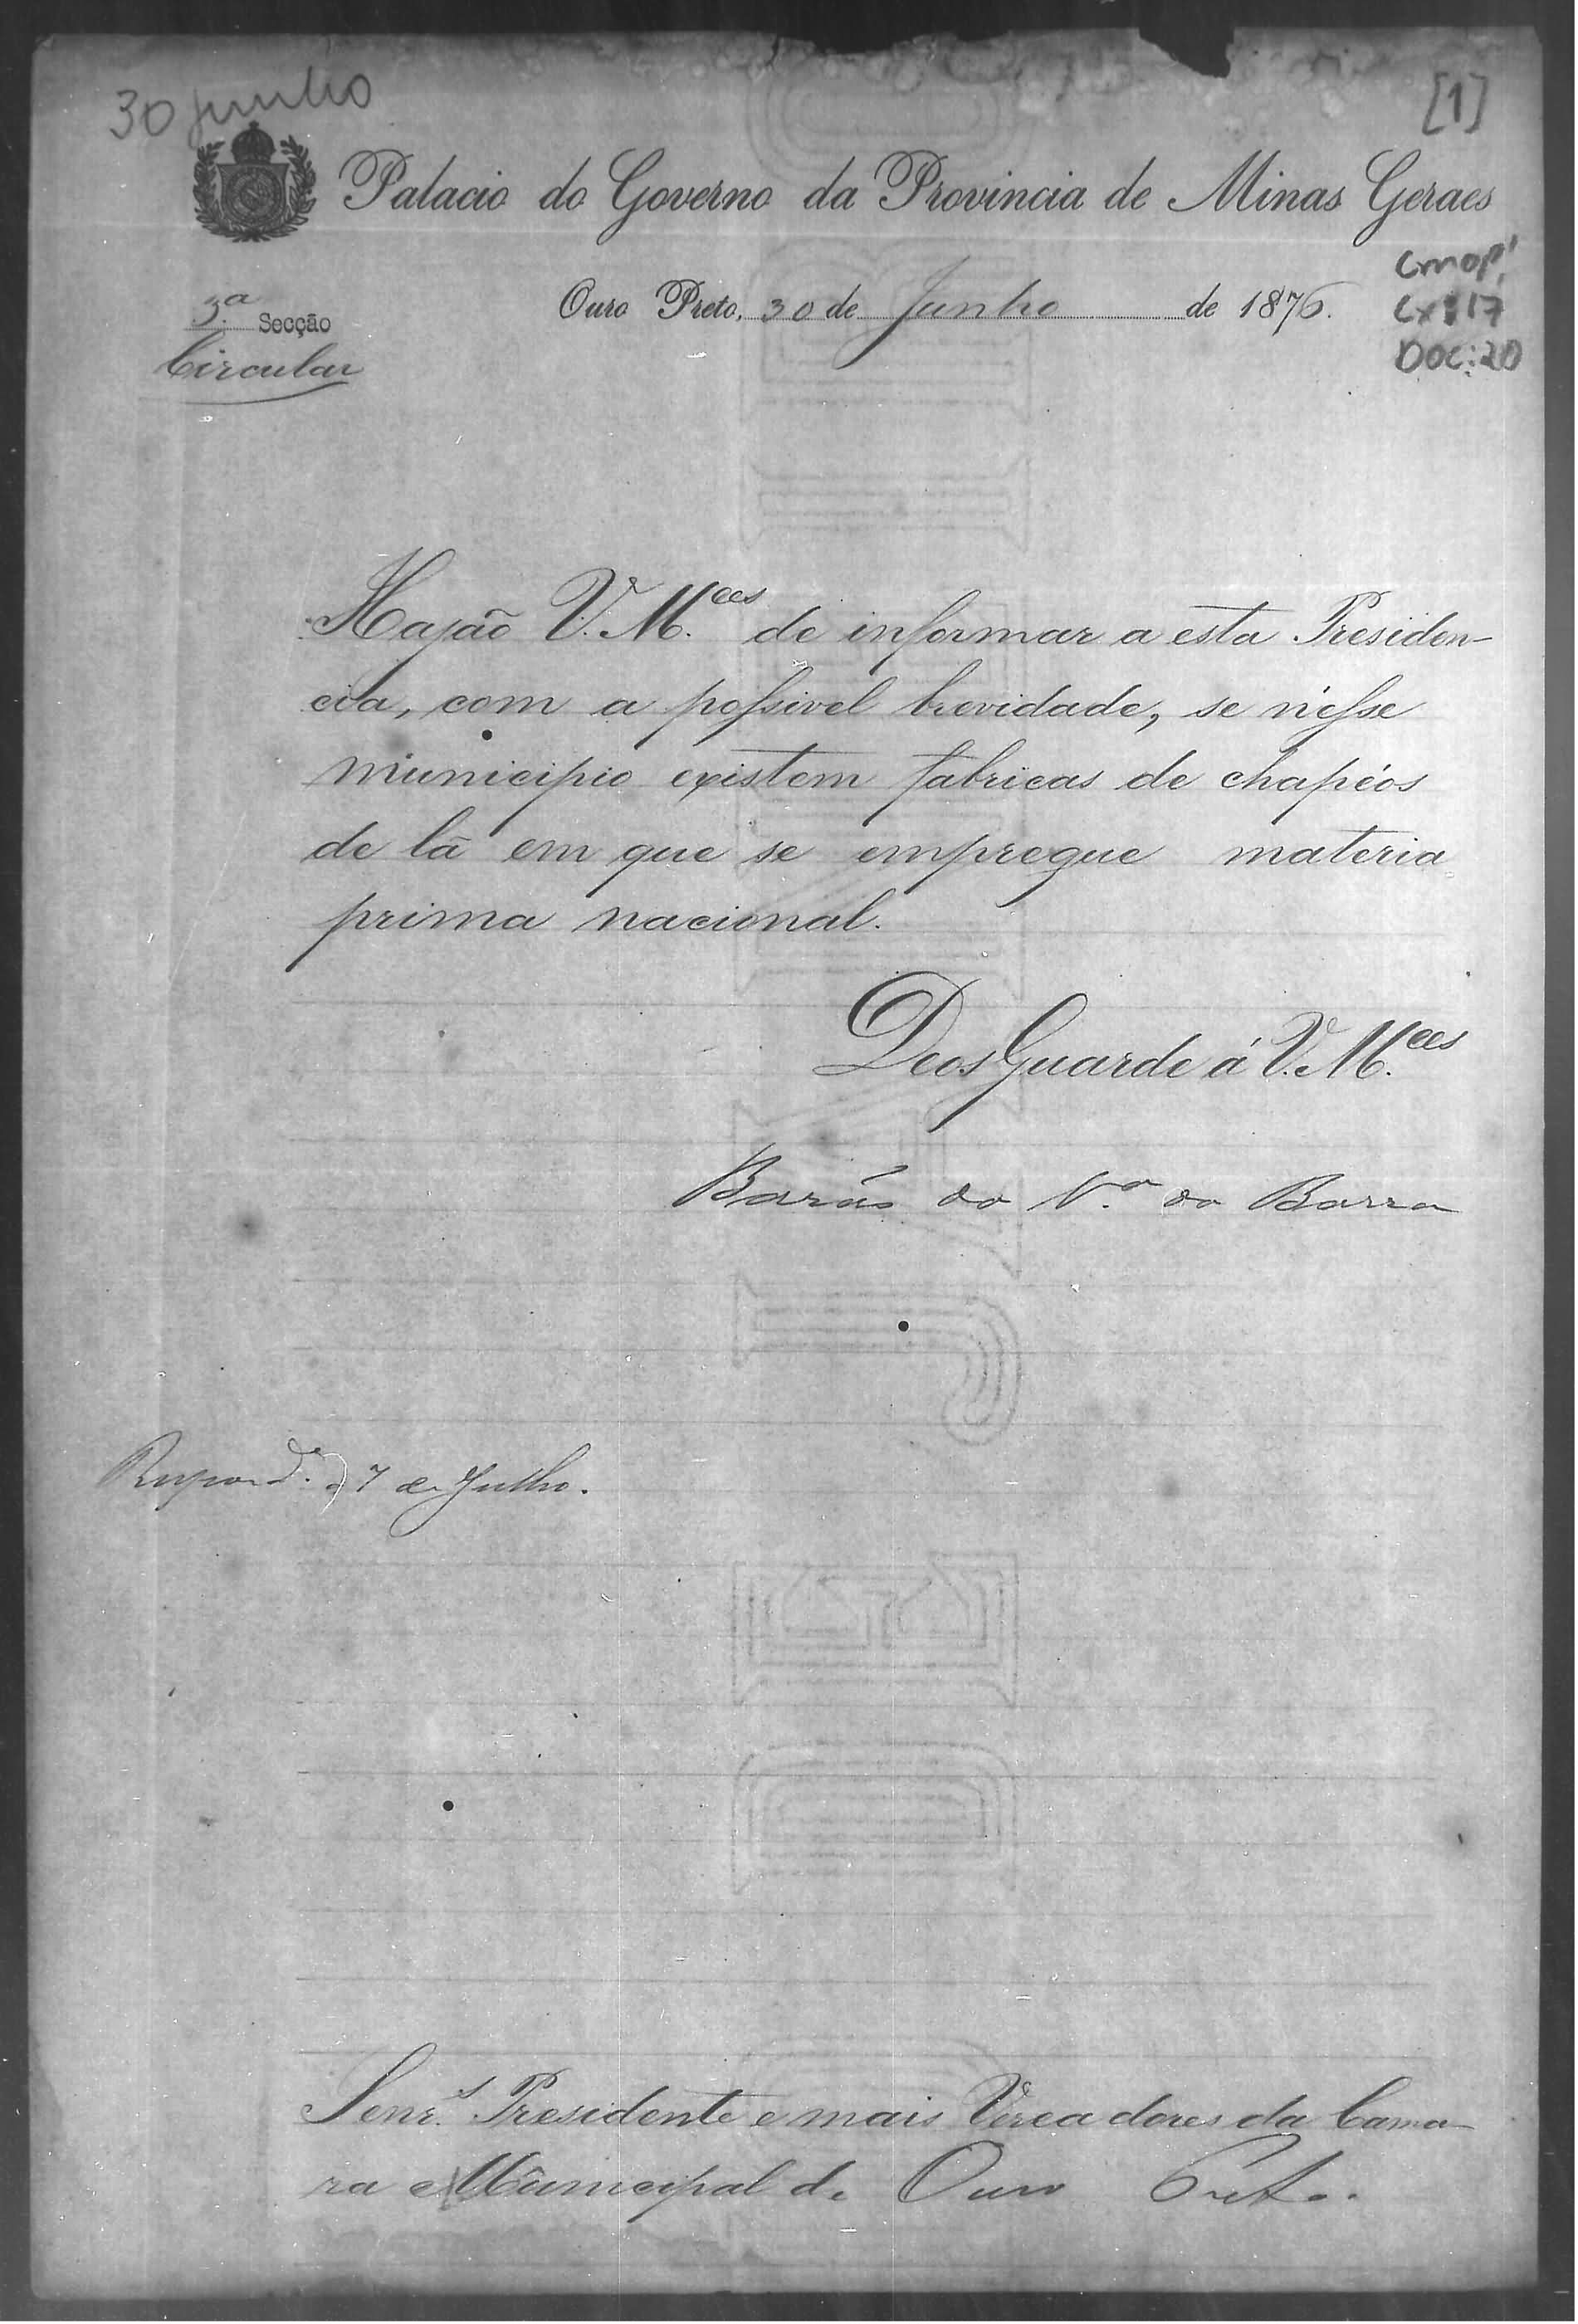 30 junho
[1]
Palacio do Governo da Provincia de Minas Geraes
Cmop
Cx: 17
DOC: 20
3.ª Secção
Ouro Preto, 30 de Junho de 1876.
Circular
Hajão V. M.ces de informar a esta Presiden-
cia, com a possivel brevidade, se n'esse
municipio existem fabricas de chapéos
de lã em que se empregue materia
prima nacional.
Deos Guarde á V. M.ces
Barão da V.ª da Barra
Respond.º a 7 de Julho.
Senr.s Presidente e mais Vereadores da Cama-
ra Municipal de Ouro Preto.